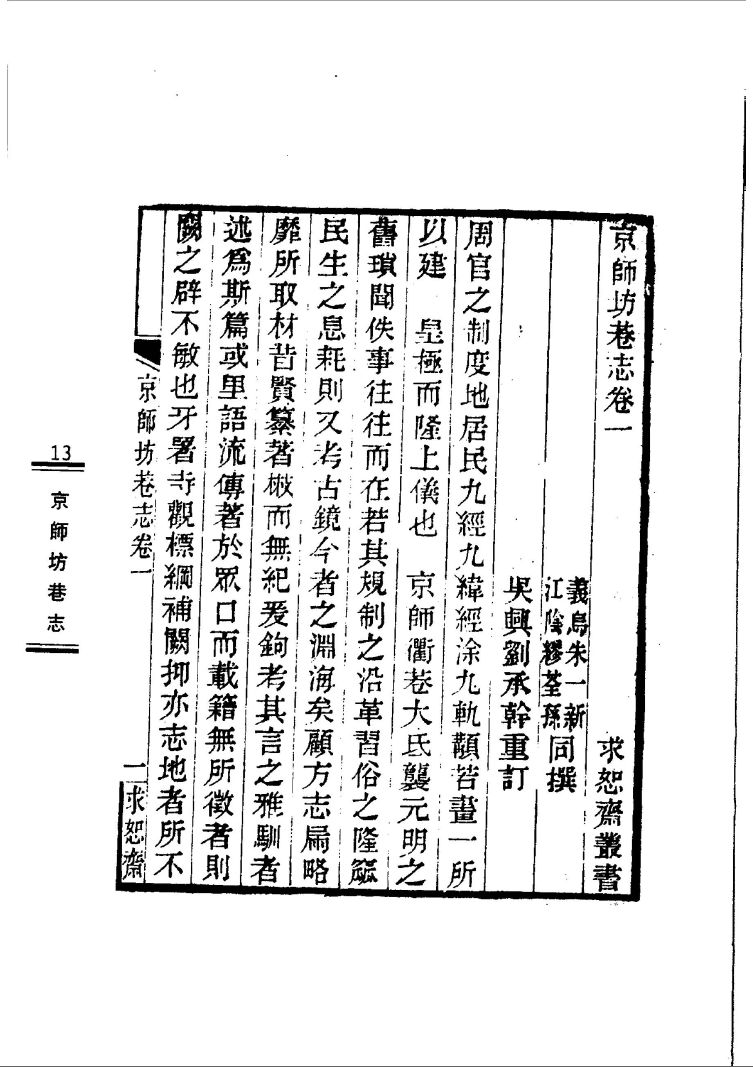 京師坊巷志卷一
求恕齋叢書
義烏朱一新
江陰繆荃孫
同撰
吳興劉承幹重訂
周官之制度地居民九經九緯經涂九軌顜若畫一所
以建 皇極而隆上儀也 京師衢巷大氐襲元明之
舊瑣聞佚事往往而在若其規制之沿革習俗之隆
民生之息耗則又考古鏡今者之淵海矣顧方志扃略
靡所取材昔賢纂著橶而無紀爰鉤考其言之雅馴者
述爲斯篇或里語流傳著於眾口而載籍無所徵者則
闕之辟不敏也牙署寺觀標綱補闕抑亦志地者所不
京師坊巷志卷一
一
求恕齋
13
京師坊巷志